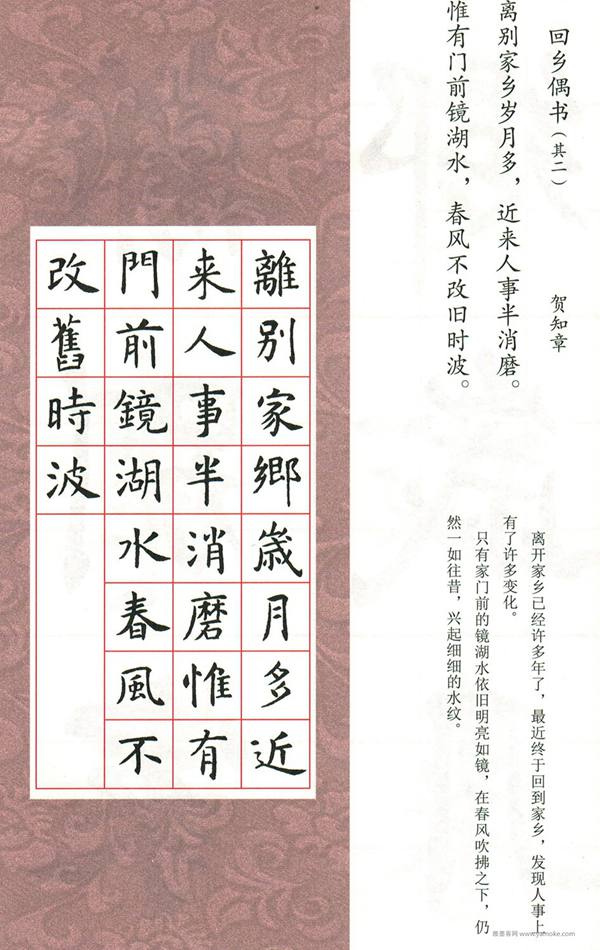 回乡偶书（其二）
贺知章
离别家乡岁月多，近来人事半消磨。
惟有门前镜湖水，春风不改旧时波。
离开家乡已经许多年了，最近终于回到家乡，发现人事上
有了许多变化。
只有家门前的镜湖水依旧明亮如镜，在春风吹拂之下，仍
然一如往昔，兴起细细的水纹。
離别家鄉歳月多近
来人事半消磨惟有
門前鏡湖水春風不
改舊時波
雅墨客网 www.yamoke.com